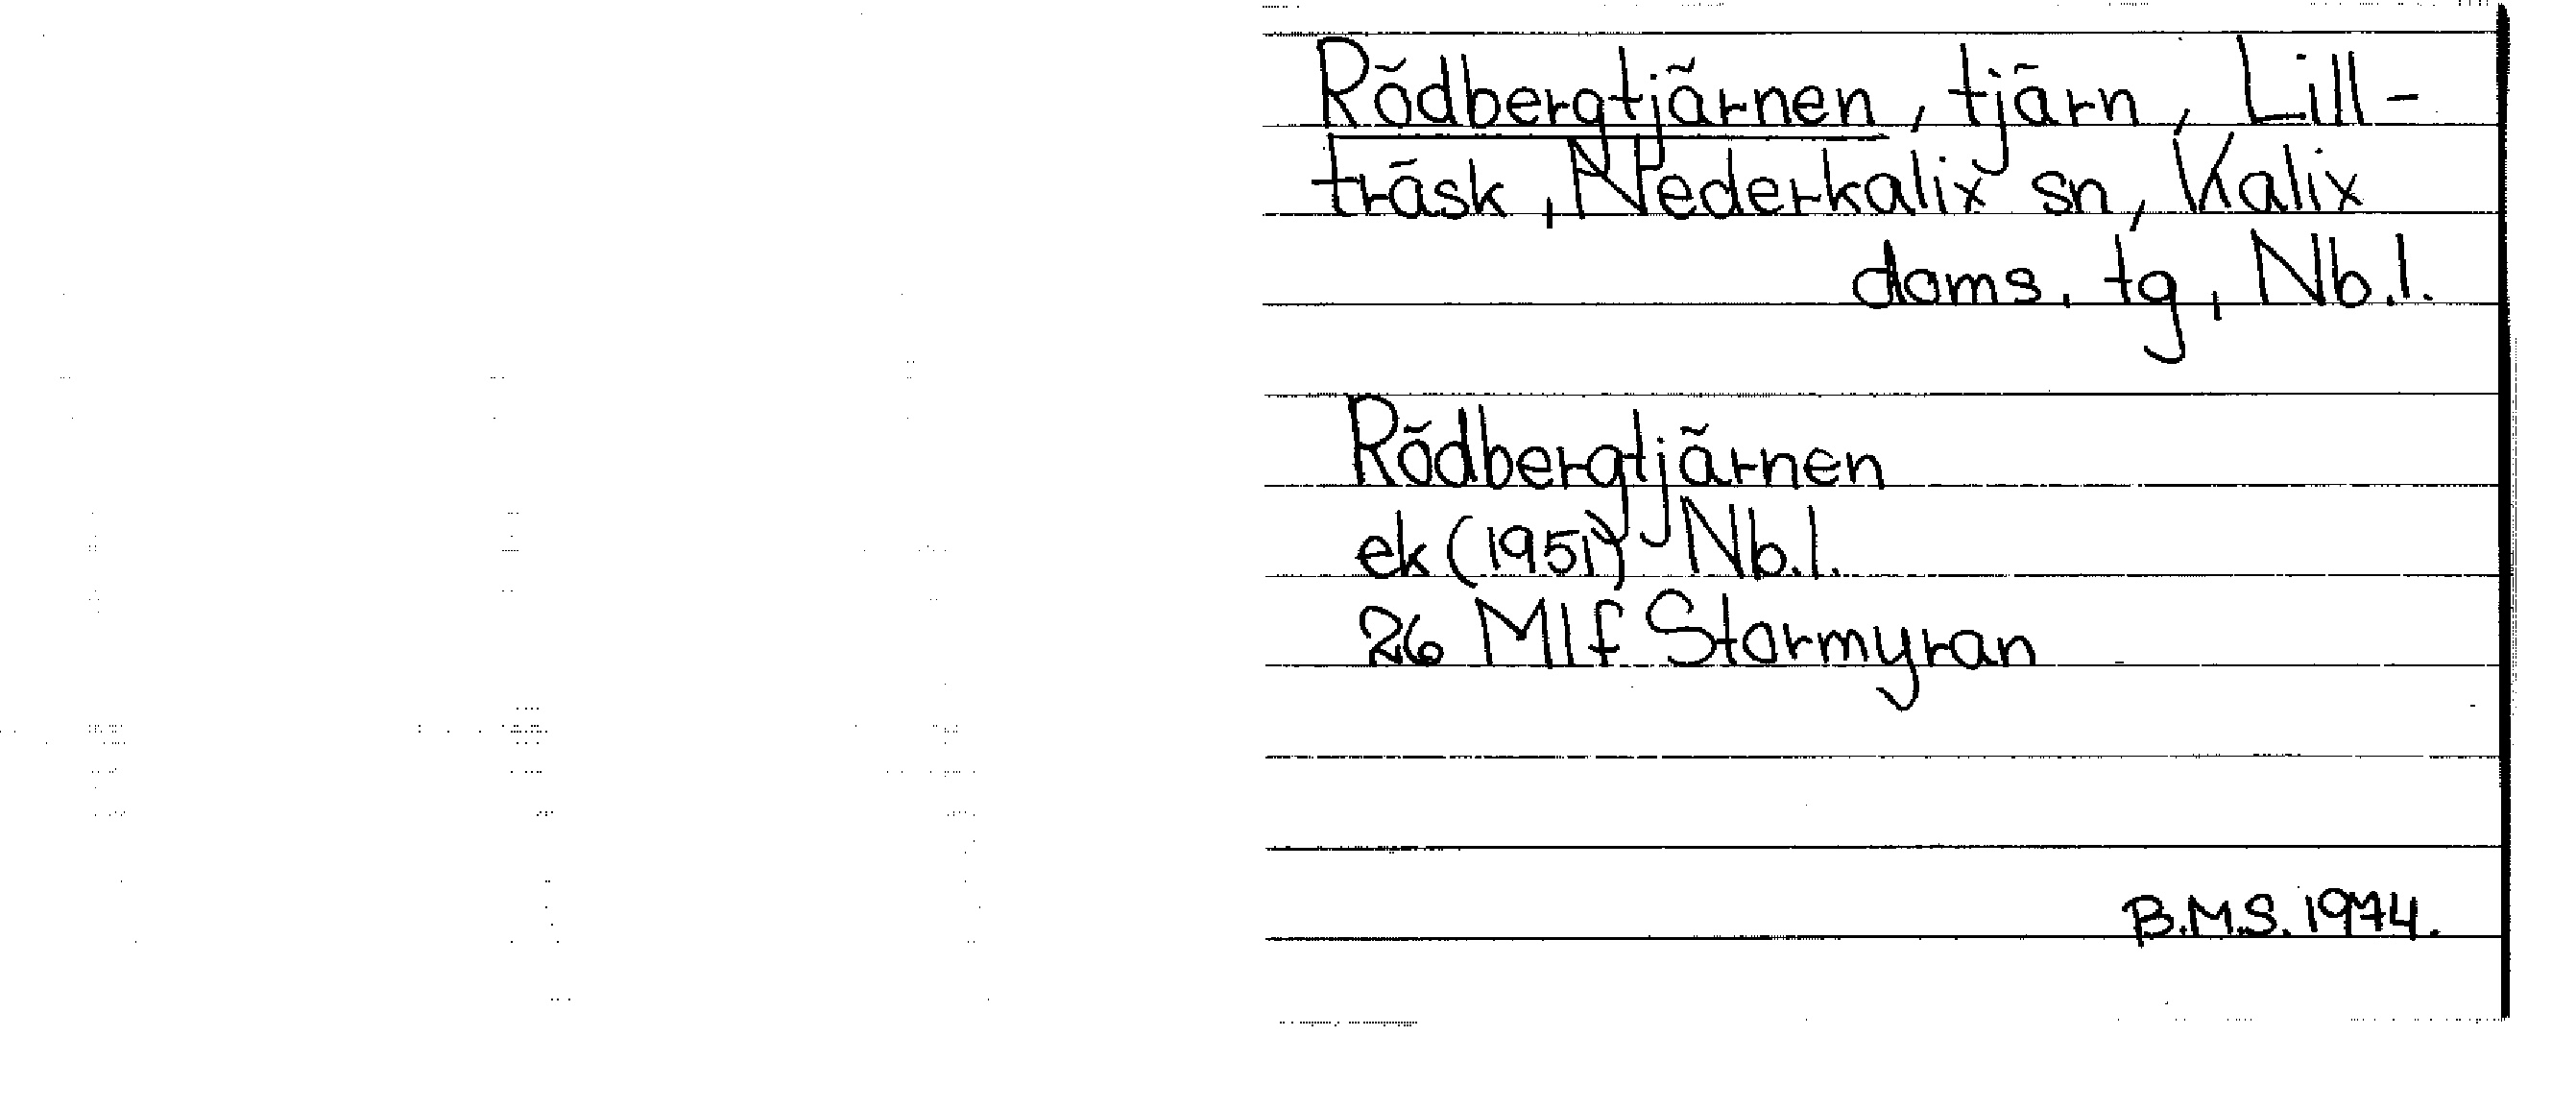 Rödbergtjärnen, tjärn, Lill-
träsk, Nederkalix sn, Kalix
doms. tg, Nb.l.
Rödbergtjärnen
ek (1951) Nb.l.
26 Mlf Stormyran
B.M.S. 1974.